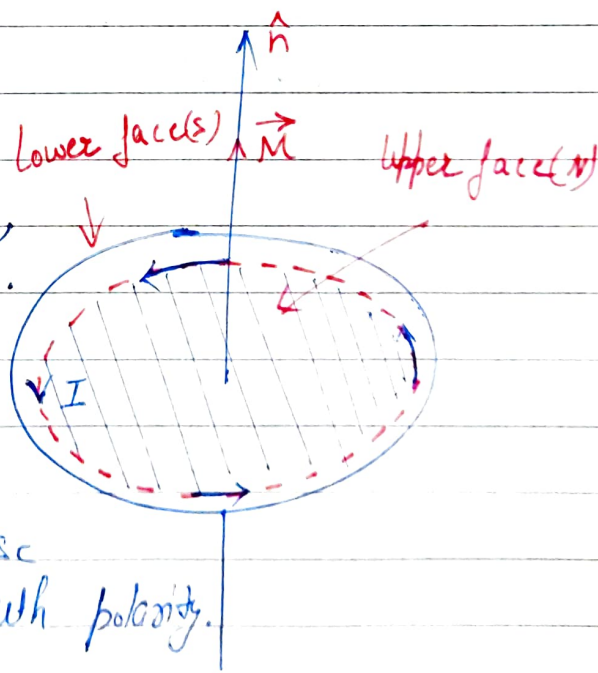 n̂
Lower face(S)
M⃗
Upper face(N)
I
sc
uth polarity.